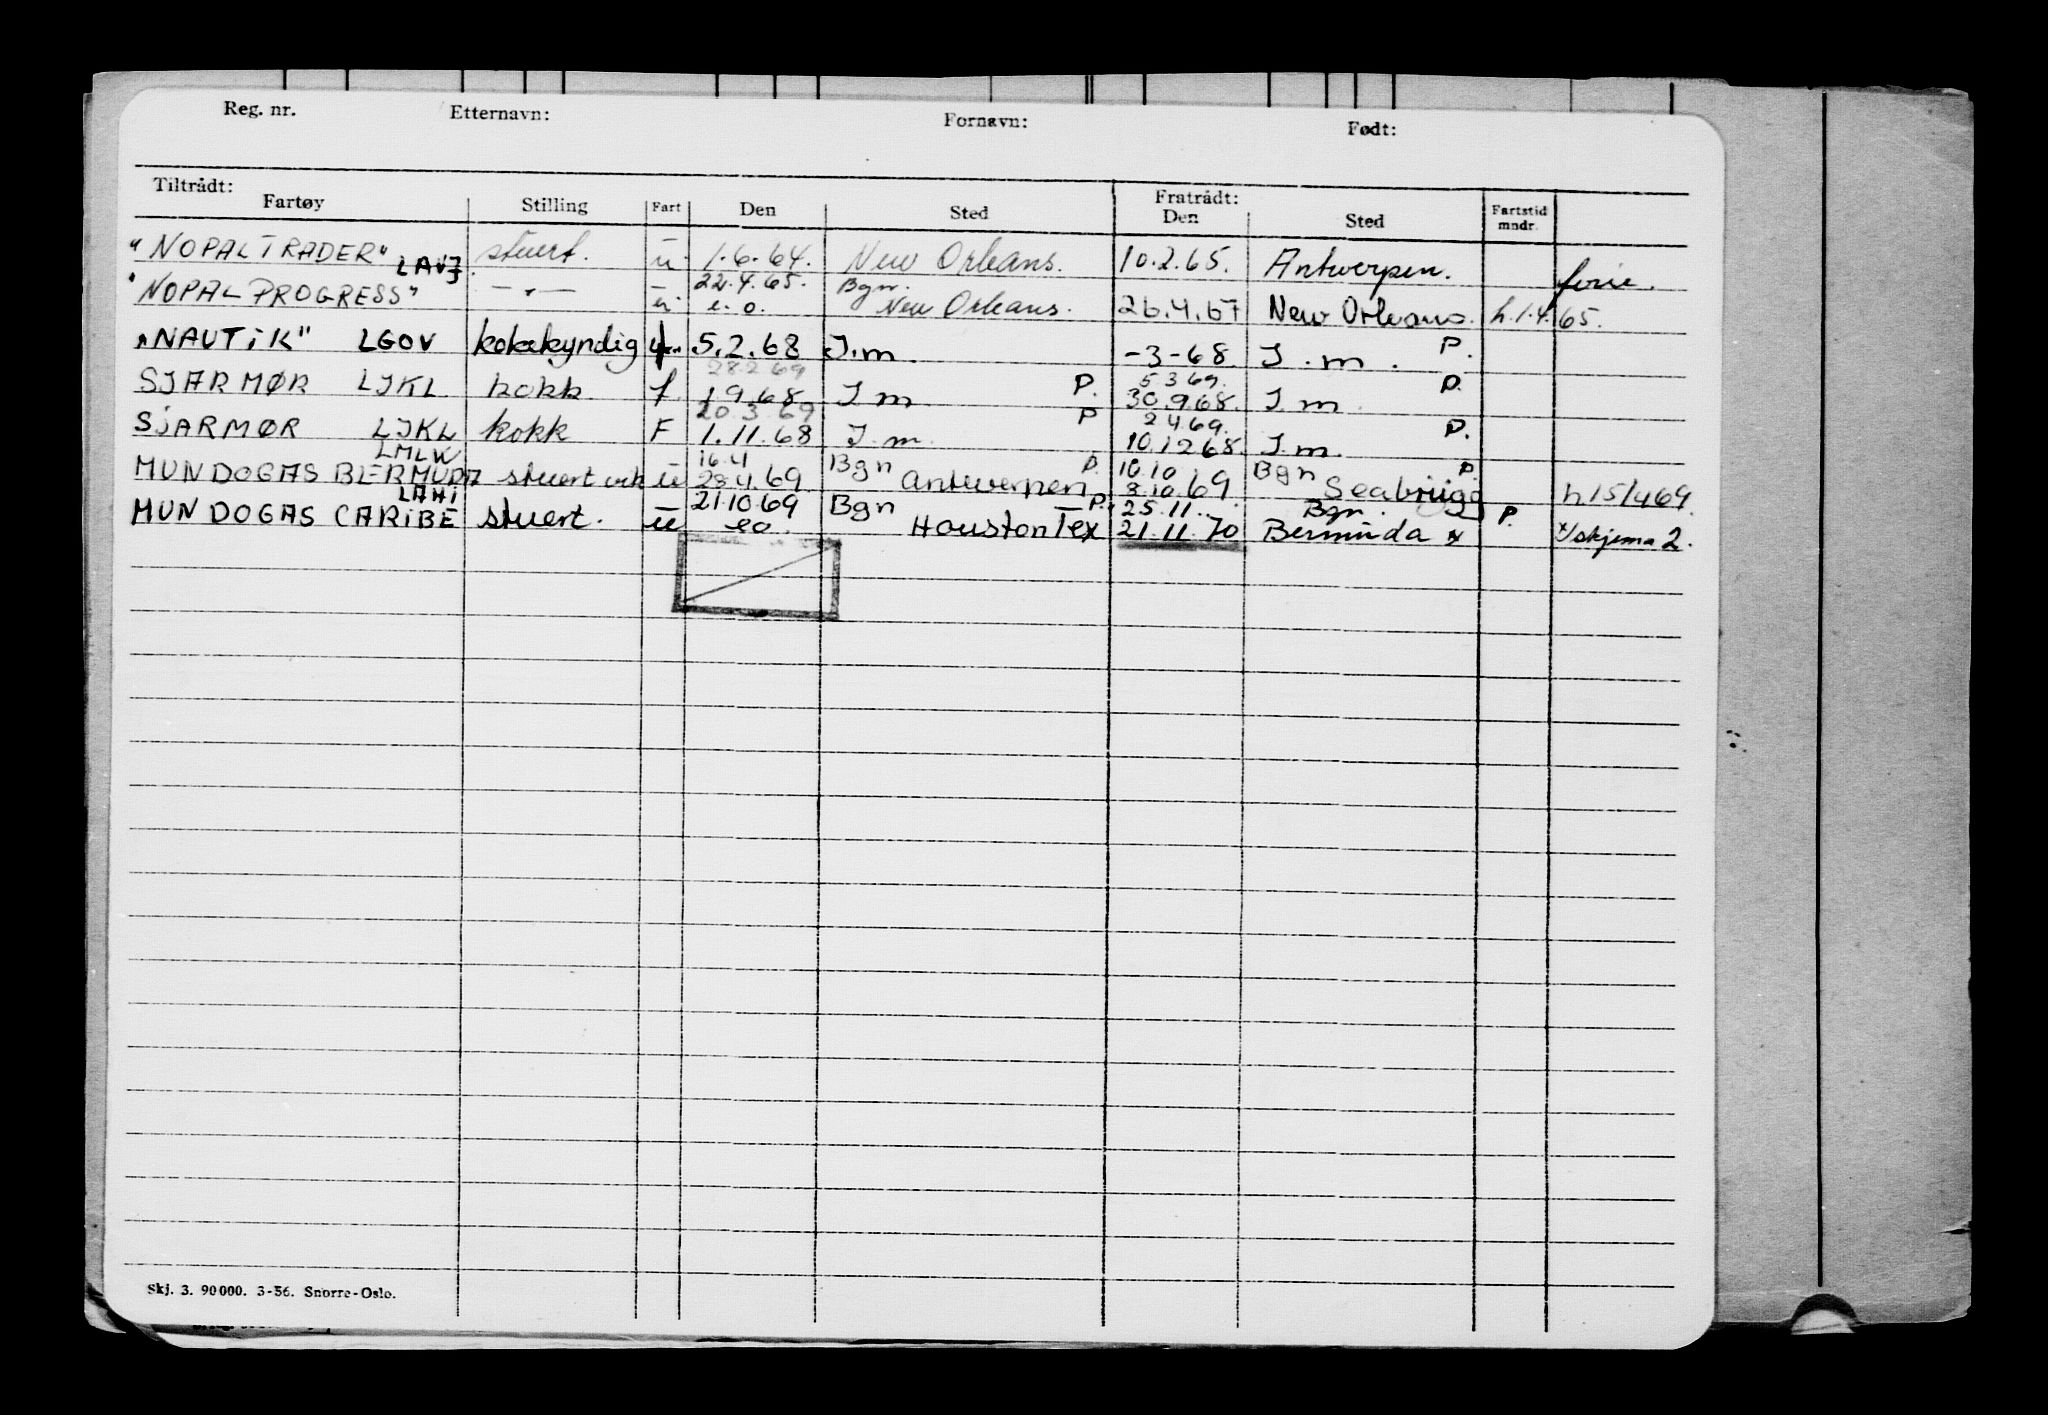 Reg. nr. Etternavn: Fornavn: Født:
Tiltrådt: Fratrådt:
Fartøy Stilling Fart Den Sted Den Sted Fartstid mndr.
"NOPAL TRADER" stuert. u 1.6.64. New Orleans. 10.2.65. Antwerpen. ferie.
LAVJ 22.4.65. Bgn.
"NOPAL PROGRESS" —"— u. e.o. New Orleans. 26.4.67 New Orleans. h.1.4.65.
"NAUTiK" LGOV kokekyndig 5.2.68 I.m. -3-68 I.m. P.
28.2.69 5.3.69.
SJARMØR LJKL kokk f. 1.9.68 I m P. 30.9.68. I.m. P.
20.3.69 2.4.69.
SJARMØR LJKL kokk F 1.11.68 I.m. P 10.12.68. I.m. P.
LMLW 16.4 Bgn P. 10.10 Bgn P.
MUNDOGAS BERMUDA stuert vik u 28.4.69 Antwerpen 8.10.69 Seabrigg h 15/4 69.
LAHI 21.10.69 Bgn P. 25.11. Bgn.
MUNDOGAS CARiBE stuert. u eo. Houston Tex 21.11.70 Bermuda x P. x/skjema 2.
Skj. 3. 90000. 3-56. Snorre-Oslo.